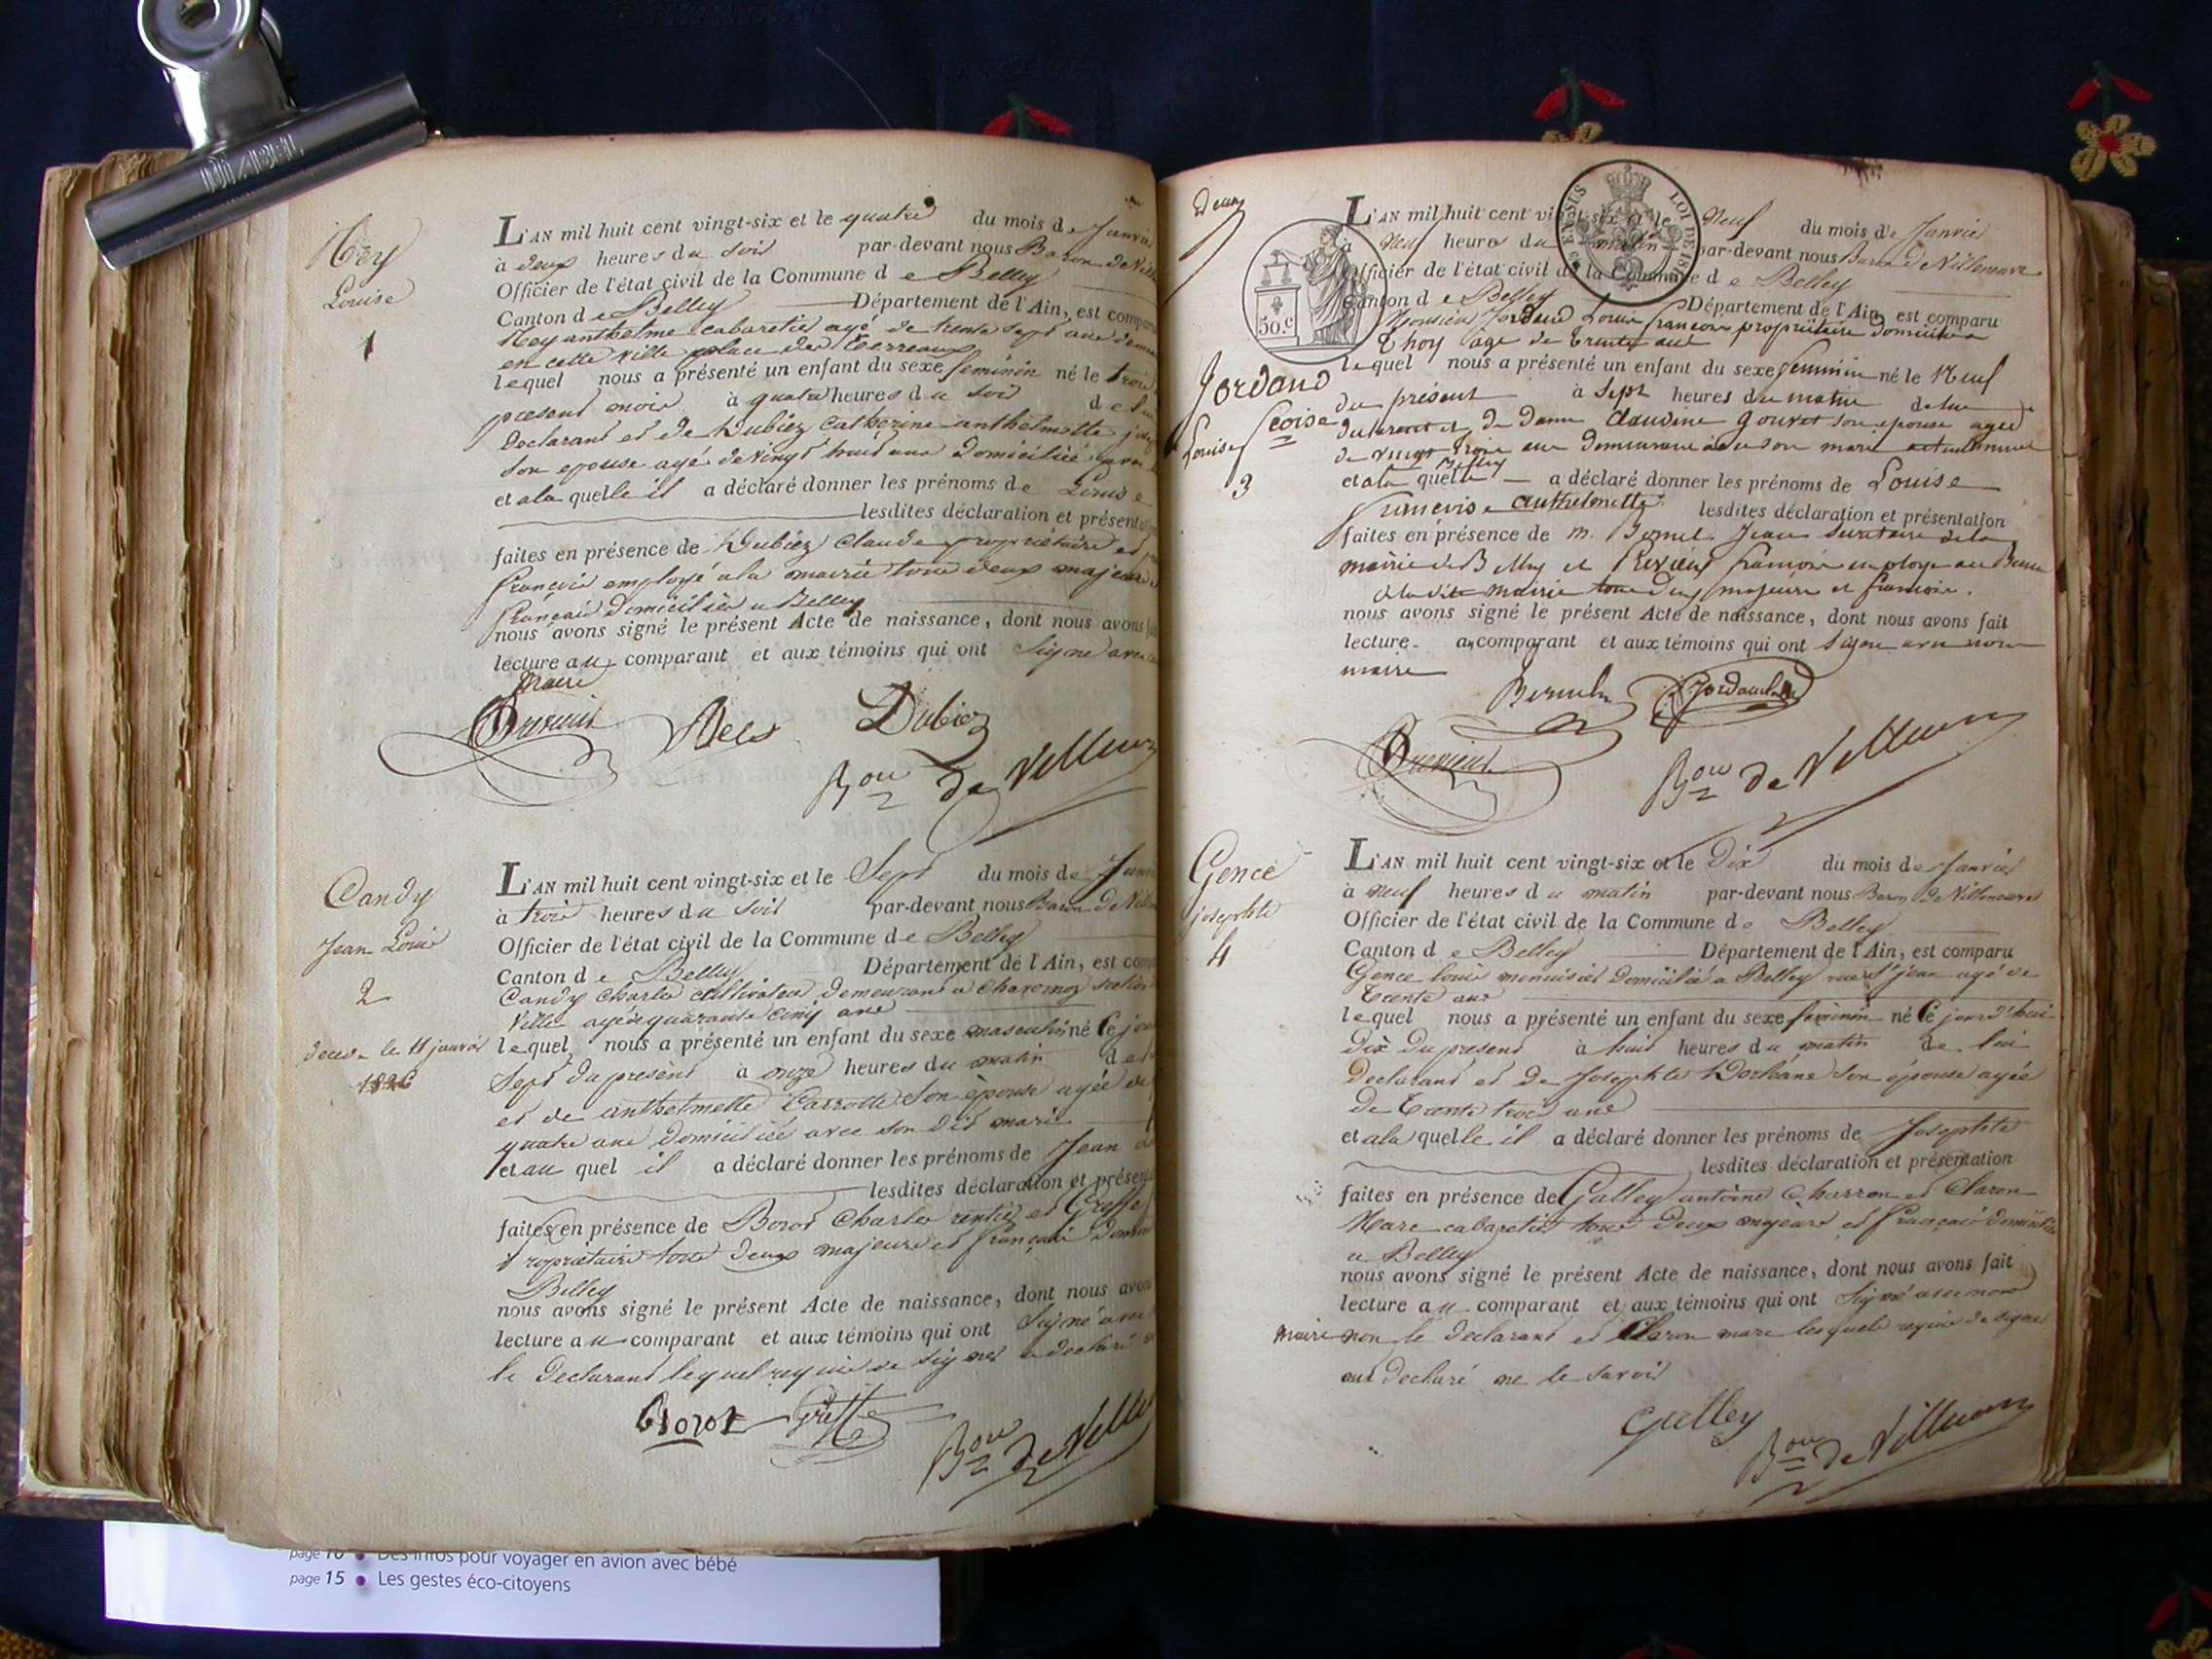 Louise
1
L'AN mil huit cent vingt-six et le quatre du mois de Janvier
à deux heures du soir par-devant nous Baron de Ville
Officier de l'état civil de la Commune de Belley
Canton de Belley Département de l'Ain, est compa
anthelme cabaretier agé de trente sept ans
en cette ville place des Terreaux
lequel nous a présenté un enfant du sexe féminin né le trois
present mois à quatre heures du soir de
declarant et de Dubiez Catherine anthelmette
son epouse agée de vingt huit ans domiciliée
et a la quelle il a déclaré donner les prénoms de Louise
lesdites déclaration et présent
faites en présence de Dubiez Claude propriétaire et
françois employé a la mairie tous deux majeurs
français domiciliés a Belley
nous avons signé le présent Acte de naissance, dont nous avons
lecture au comparant et aux témoins qui ont signé avec
Maire
Dubiez
Bon de Villeneuv
Candy
Jean Louis
2
le 11 janvier
1826
L'AN mil huit cent vingt-six et le Sept du mois de Janv
à trois heures du soir par-devant nous Baron de Ville
Officier de l'état civil de la Commune de Belley
Canton de Belley Département de l'Ain, est comp
Candy Charles cultivateur demeurant a
Ville agé de quarante cinq ans
lequel nous a présenté un enfant du sexe masculin né Ce jour
Sept du présent à onze heures du matin de
et de anthelmette Carrotte son épouse agée de
quatre ans domiciliée avec son dit mari
et au quel il a déclaré donner les prénoms de Jean
lesdites déclaration et présen
faites en présence de Borot Charles rentier et Greffe
propriétaire tous deux majeurs et français
Belley
nous avons signé le présent Acte de naissance, dont nous avon
lecture au comparant et aux témoins qui ont Signé avec
le Declarant lequel requis de signer a declaré
Borot Greffe
Bon de Ville
Jordand
Louise Fcoise
3
50.C
LOI DE 181
L'AN mil huit cent vingt-six et le Neuf du mois de Janvier
à Neuf heures du matin par-devant nous Baron de Villeneuve
Officier de l'état civil de la Commune de Belley
Canton de Belley Département de l'Ain, est comparu
Monsieur Jordand Louis françois propriétaire domicilié a
Thoy age de trente ans
lequel nous a présenté un enfant du sexe feminin né le Neuf
du présent à Sept heures du matin de lui
declarant et de Dame Claudine Gouvet son epouse agée
de vingt trois ans demeurant avec son mari
Belley
et a la quelle a déclaré donner les prénoms de Louise
francoise anthelmette lesdites déclaration et présentation
faites en présence de M. Jean Secretaire de la
mairie de Belley et françois employé au Bureau
de la dite mairie tous deux majeurs et francois.
nous avons signé le présent Acte de naissance, dont nous avons fait
lecture au comparant et aux témoins qui ont signé avec nous
maire
Bon de Villeneuv
Gence
josephte
4
L'AN mil huit cent vingt-six et le Dix du mois de Janvier
à Neuf heures du matin par-devant nous Baron de Villeneuve
Officier de l'état civil de la Commune de Belley
Canton de Belley Département de l'Ain, est comparu
Gence louis menuisier domicilié a Belley rue St jean agé de
trente ans
lequel nous a présenté un enfant du sexe féminin né Ce jourd'hui
Dix du present à huit heures du matin de lui
Declarant et de Josephte Dorleane son épouse agée
de trente trois ans
et a la quelle il a déclaré donner les prénoms de Josephte
lesdites déclaration et présentation
faites en présence de Galley antoine Charron et Claron
Marc cabaretier tous deux majeurs et français domiciliés
a Belley
nous avons signé le présent Acte de naissance, dont nous avons fait
lecture au comparant et aux témoins qui ont Signé avec nous
maire non le Declarant et Claron marc lesquels requis de signer
ont declaré ne le savoir
Galley
Bon de Villeneuv
page 10 • Des infos pour voyager en avion avec bébé
page 15 • Les gestes éco-citoyens